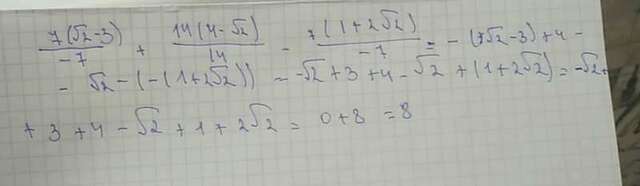 7(√2-3)/-7 + 14(4-√2)/14 - 7(1+2√2)/-7 = -(√2-3)+4-
- √2-(-(1+2√2)) = -√2+3+4-√2+(1+2√2)=-√2+
+3+4-√2+1+2√2= 0+8 =8